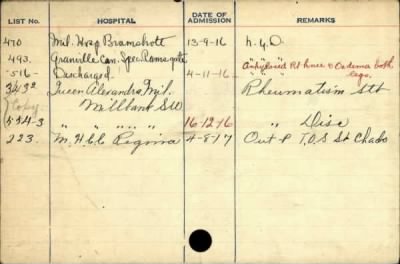 LIST No. HOSPITAL DATE OF ADMISSION REMARKS
470 Mil. Hosp Bramshott 13-9-16 N.Y.D.
493. Granville Can. Spec. Ramsgate " " " Ankylosed Rt knee & Oedema both legs.
-516- Discharged. 4-11-16 " "
3432 Queen Alexandra Mil. Rheumatism Slt
Copy Millbank SW
534-3 " " " " 16-12-16 " Disc
223. M.H.C.C. Regina 4-8-17 Out P T.O.S St Chads